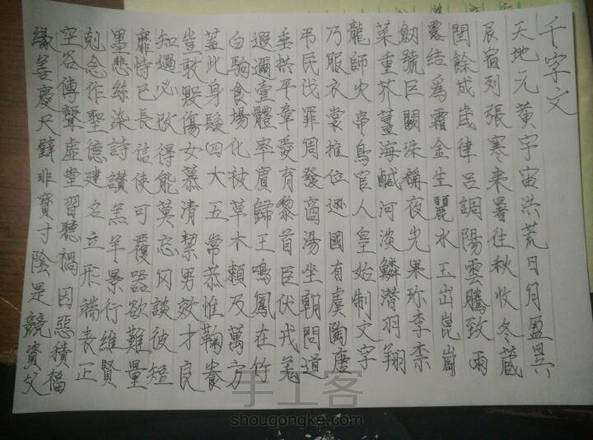 千字文
天地元黃宇宙洪荒日月盈昃
辰宿列張寒來暑往秋收冬藏
閏餘成歲律呂調陽雲騰致雨
露結為霜金生麗水玉出崑崗
劍號巨闕珠稱夜光果珍李柰
菜重芥薑海鹹河淡鱗潛羽翔
龍師火帝鳥官人皇始制文字
乃服衣裳推位遜國有虞陶唐
弔民伐罪周發商湯坐朝問道
垂拱平章愛育黎首臣伏戎羌
遐邇壹體率賓歸王鳴鳳在竹
白駒食場化被草木賴及萬方
蓋此身髮四大五常恭惟鞠養
豈敢毀傷女慕清絜男效才良
知過必改得能莫忘罔談彼短
靡恃己長信使可覆器欲難量
墨悲絲染詩讚羔羊景行維賢
剋念作聖德建名立形端表正
空谷傳聲虛堂習聽禍因惡積福
緣善慶尺璧非寶寸陰是競資父
手工客
shougongke.com